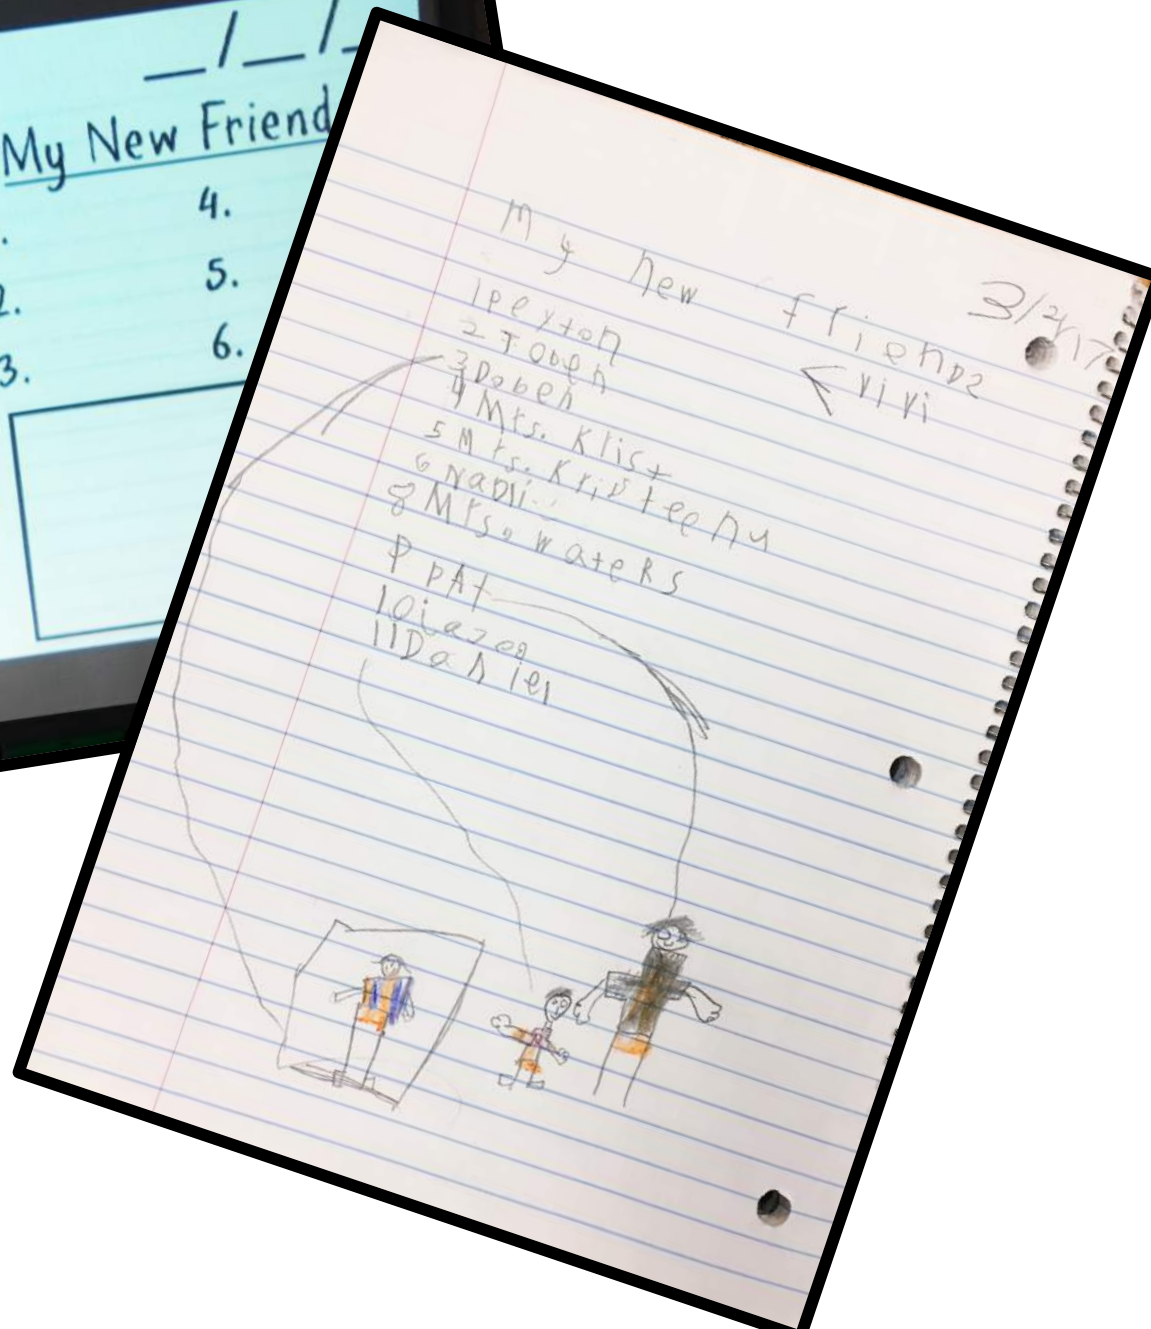 __/__/_
My New Friend
.
2.
3.
4.
5.
6.
3/2/17
My new friends
< vivi
1 pexton
2 Joben
3 Doben
4 Mrs. Klist
5 Mrs. Kristeeny
6
8 Mrs. Waters
9 pAt
10
11 Daniel